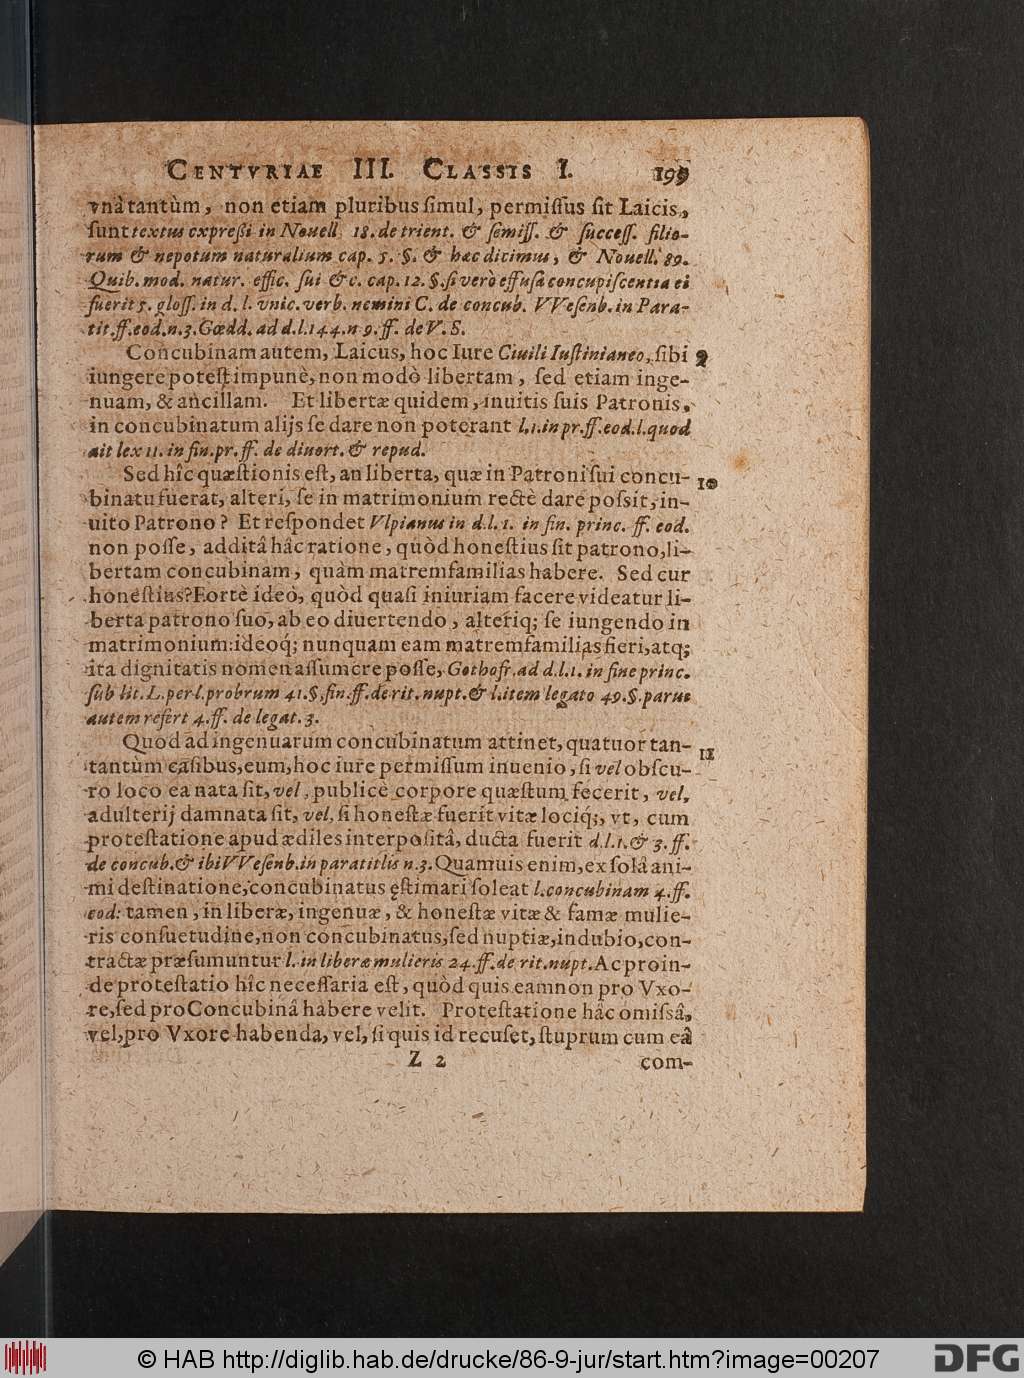 CENTVRIAE III. CLASSIS I. 199
vnâ tantùm, non etiam pluribus ſimul, permiſſus ſit Laicis,
ſunt textus expreßi in Nouell. 18. de trient. & ſemiſſ. & ſucceſſ. filio-
rum & nepotum naturalium cap. 5. §. & hæc dicimus, & Nouell. 89.
Quib. mod. natur. effic. ſui &c. cap. 12. §. ſi verò effuſa concupiſcentia ei
fuerit 5. gloſſ. in d. l. vnic. verb. nemini C. de concub. VVeſenb. in Para-
tit. ff. eod. n. 3. Gœdd. ad d. l. 144. n 9. ff. de V. S.
Concubinam autem, Laicus, hoc Iure Ciuili Iuſtinianeo, ſibi 9
iungere poteſt impunè, non modò libertam, ſed etiam inge-
nuam, & ancillam. Et libertæ quidem, inuitis ſuis Patronis,
in concubinatum alijs ſe dare non poterant l. 1. in pr. ff. eod. l. quod
ait lex 11. in fin. pr. ff. de diuort. & repud.
Sed hîc quæſtionis eſt, an liberta, quæ in Patroni ſui concu- 10
binatu fuerat, alteri, ſe in matrimonium rectè dare poſsit, in-
uito Patrono? Et reſpondet Vlpianus in d. l. 1. in fin. princ. ff. eod.
non poſſe, additâ hâc ratione, quòd honeſtius ſit patrono, li-
bertam concubinam, quàm matremfamilias habere. Sed cur
honeſtius? Fortè ideò, quòd quaſi iniuriam facere videatur li-
berta patrono ſuo, ab eo diuertendo, alteriq; ſe iungendo in
matrimonium: ideoq́; nunquam eam matremfamilias fieri, atq;
ita dignitatis nomen aſſumere poſſe, Gothofr. ad d. l. 1. in fine princ.
ſub lit. L. per l. probrum 41. §. fin. ff. de rit. nupt. & l. item legato 49. §. parui
autem refert 4. ff. de legat. 3.
Quod ad ingenuarum concubinatum attinet, quatuor tan- 11
tantùm caſibus, eum, hoc iure permiſſum inuenio, ſi vel obſcu-
ro loco ea nata ſit, vel, publicè corpore quæſtum fecerit, vel,
adulterij damnata ſit, vel, ſi honeſtæ fuerit vitæ lociq́;, vt, cum
proteſtatione apud ædiles interpoſitâ, ducta fuerit d. l. 1. & 3. ff.
de concub. & ibi VVeſenb. in paratitlis n. 3. Quamuis enim, ex ſolâ ani-
mi deſtinatione, concubinatus ęſtimari ſoleat l. concubinam 4. ff.
eod: tamen, in liberæ, ingenuæ, & honeſtæ vitæ & famæ mulie-
ris conſuetudine, non concubinatus, ſed nuptiæ, indubio, con-
tractæ præſumuntur l. in liberæ mulieris 24. ff. de rit. nupt. Ac proin-
de proteſtatio hîc neceſſaria eſt, quòd quis eam non pro Vxo-
re, ſed pro Concubinâ habere velit. Proteſtatione hâc omiſsâ,
vel, pro Vxore habenda, vel, ſi quis id recuſet, ſtuprum cum eâ
Z 2 com-
© HAB http://diglib.hab.de/drucke/86-9-jur/start.htm?image=00207 DFG